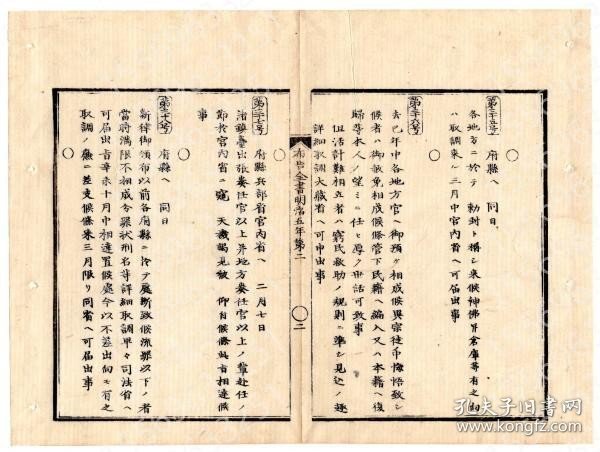 第三十五号
府縣ヘ 同日
各地方ニ於テ 勅封ト稱シ来候神佛并倉庫等有之向
ハ取調来ル三月中宮内省ヘ可届出事
〇
第三十六号
去巳年中各地方官ヘ御預ケ相成候異宗徒弟悔悟致シ
候者ハ御赦免相成候條管下民籍ヘ編入又ハ本籍ヘ復
歸等本人ノ望ミニ任セ厚ク世話可致事
但活計難相立者ハ窮民救助ノ規則ニ準シ見込ノ趣
詳細取調大藏省ヘ可申出事
布告全書明治五年第二
二
第三十七号
府縣兵部省宮内省ヘ 二月七日
諸鎮臺出張奏任官以上并地方奏任官以上ノ輩赴任ノ
節於宮内省ニ窺 天機謁見被 仰付候條此旨相達候
事
〇
第三十八号
府縣ヘ 同日
新律御頒布以前各府縣ニ於テ處断致候流罪以下ノ者
當時満限不相成分罪状刑名等詳細取調早々司法省ヘ
可届出旨辛未十月中相達置候處今以不差出向モ有之
取調ノ廉ニ差支候條来三月限リ同省ヘ可届出事
〇
孔夫子旧书网
www.kongfz.com